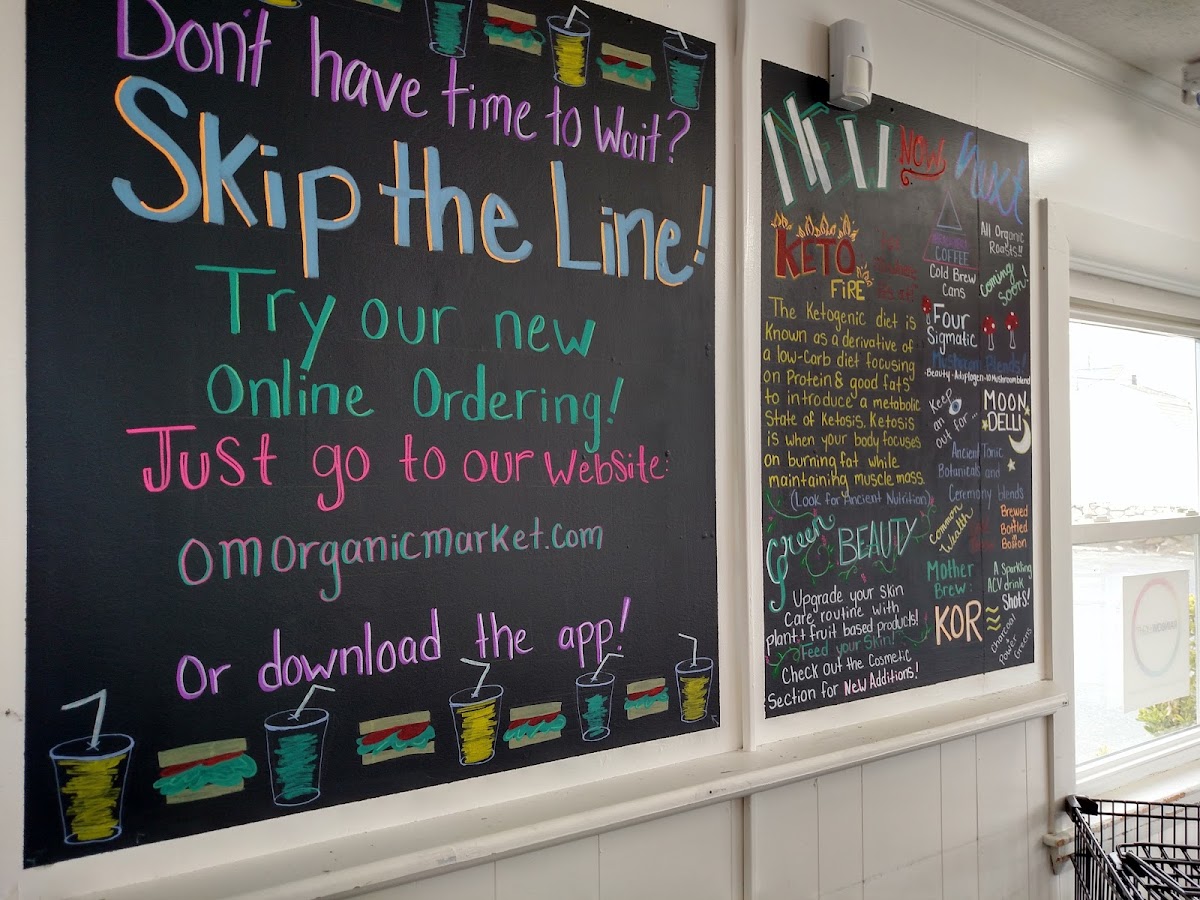 Don't have time to Wait?
Skip the Line!
Try our new
Online Ordering!
Just go to our website:
omorganicmarket.com
Or download the app!
NEW NOW Next
KETO
FIRE
The Ketogenic diet is
Known as a derivative of
a low-carb diet focusing
on Protein & good fats
to introduce a metabolic
State of Ketosis. Ketosis
is when your body focuses
on burning fat while
maintaining muscle mass.
(Look for Ancient Nutrition)
Green BEAUTY
Upgrade your skin
Care routine with
plant + fruit based products!
Feed your skin!
Check out the Cosmetic
Section for New Additions!
COFFEE
Cold Brew
Cans
All Organic
Roasts!!
Coming
Soon!
Four
Sigmatic
Mushroom Blends!
Keep
an
out for...
MOON
DELLI
Ancient Tonic
Botanicals and
Ceremony blends
Common
Wealth
Brewed
Bottled
Mother
Brew:
A Sparkling
ACV drink
KOR
Shots!
Charcoal
Power
Greens